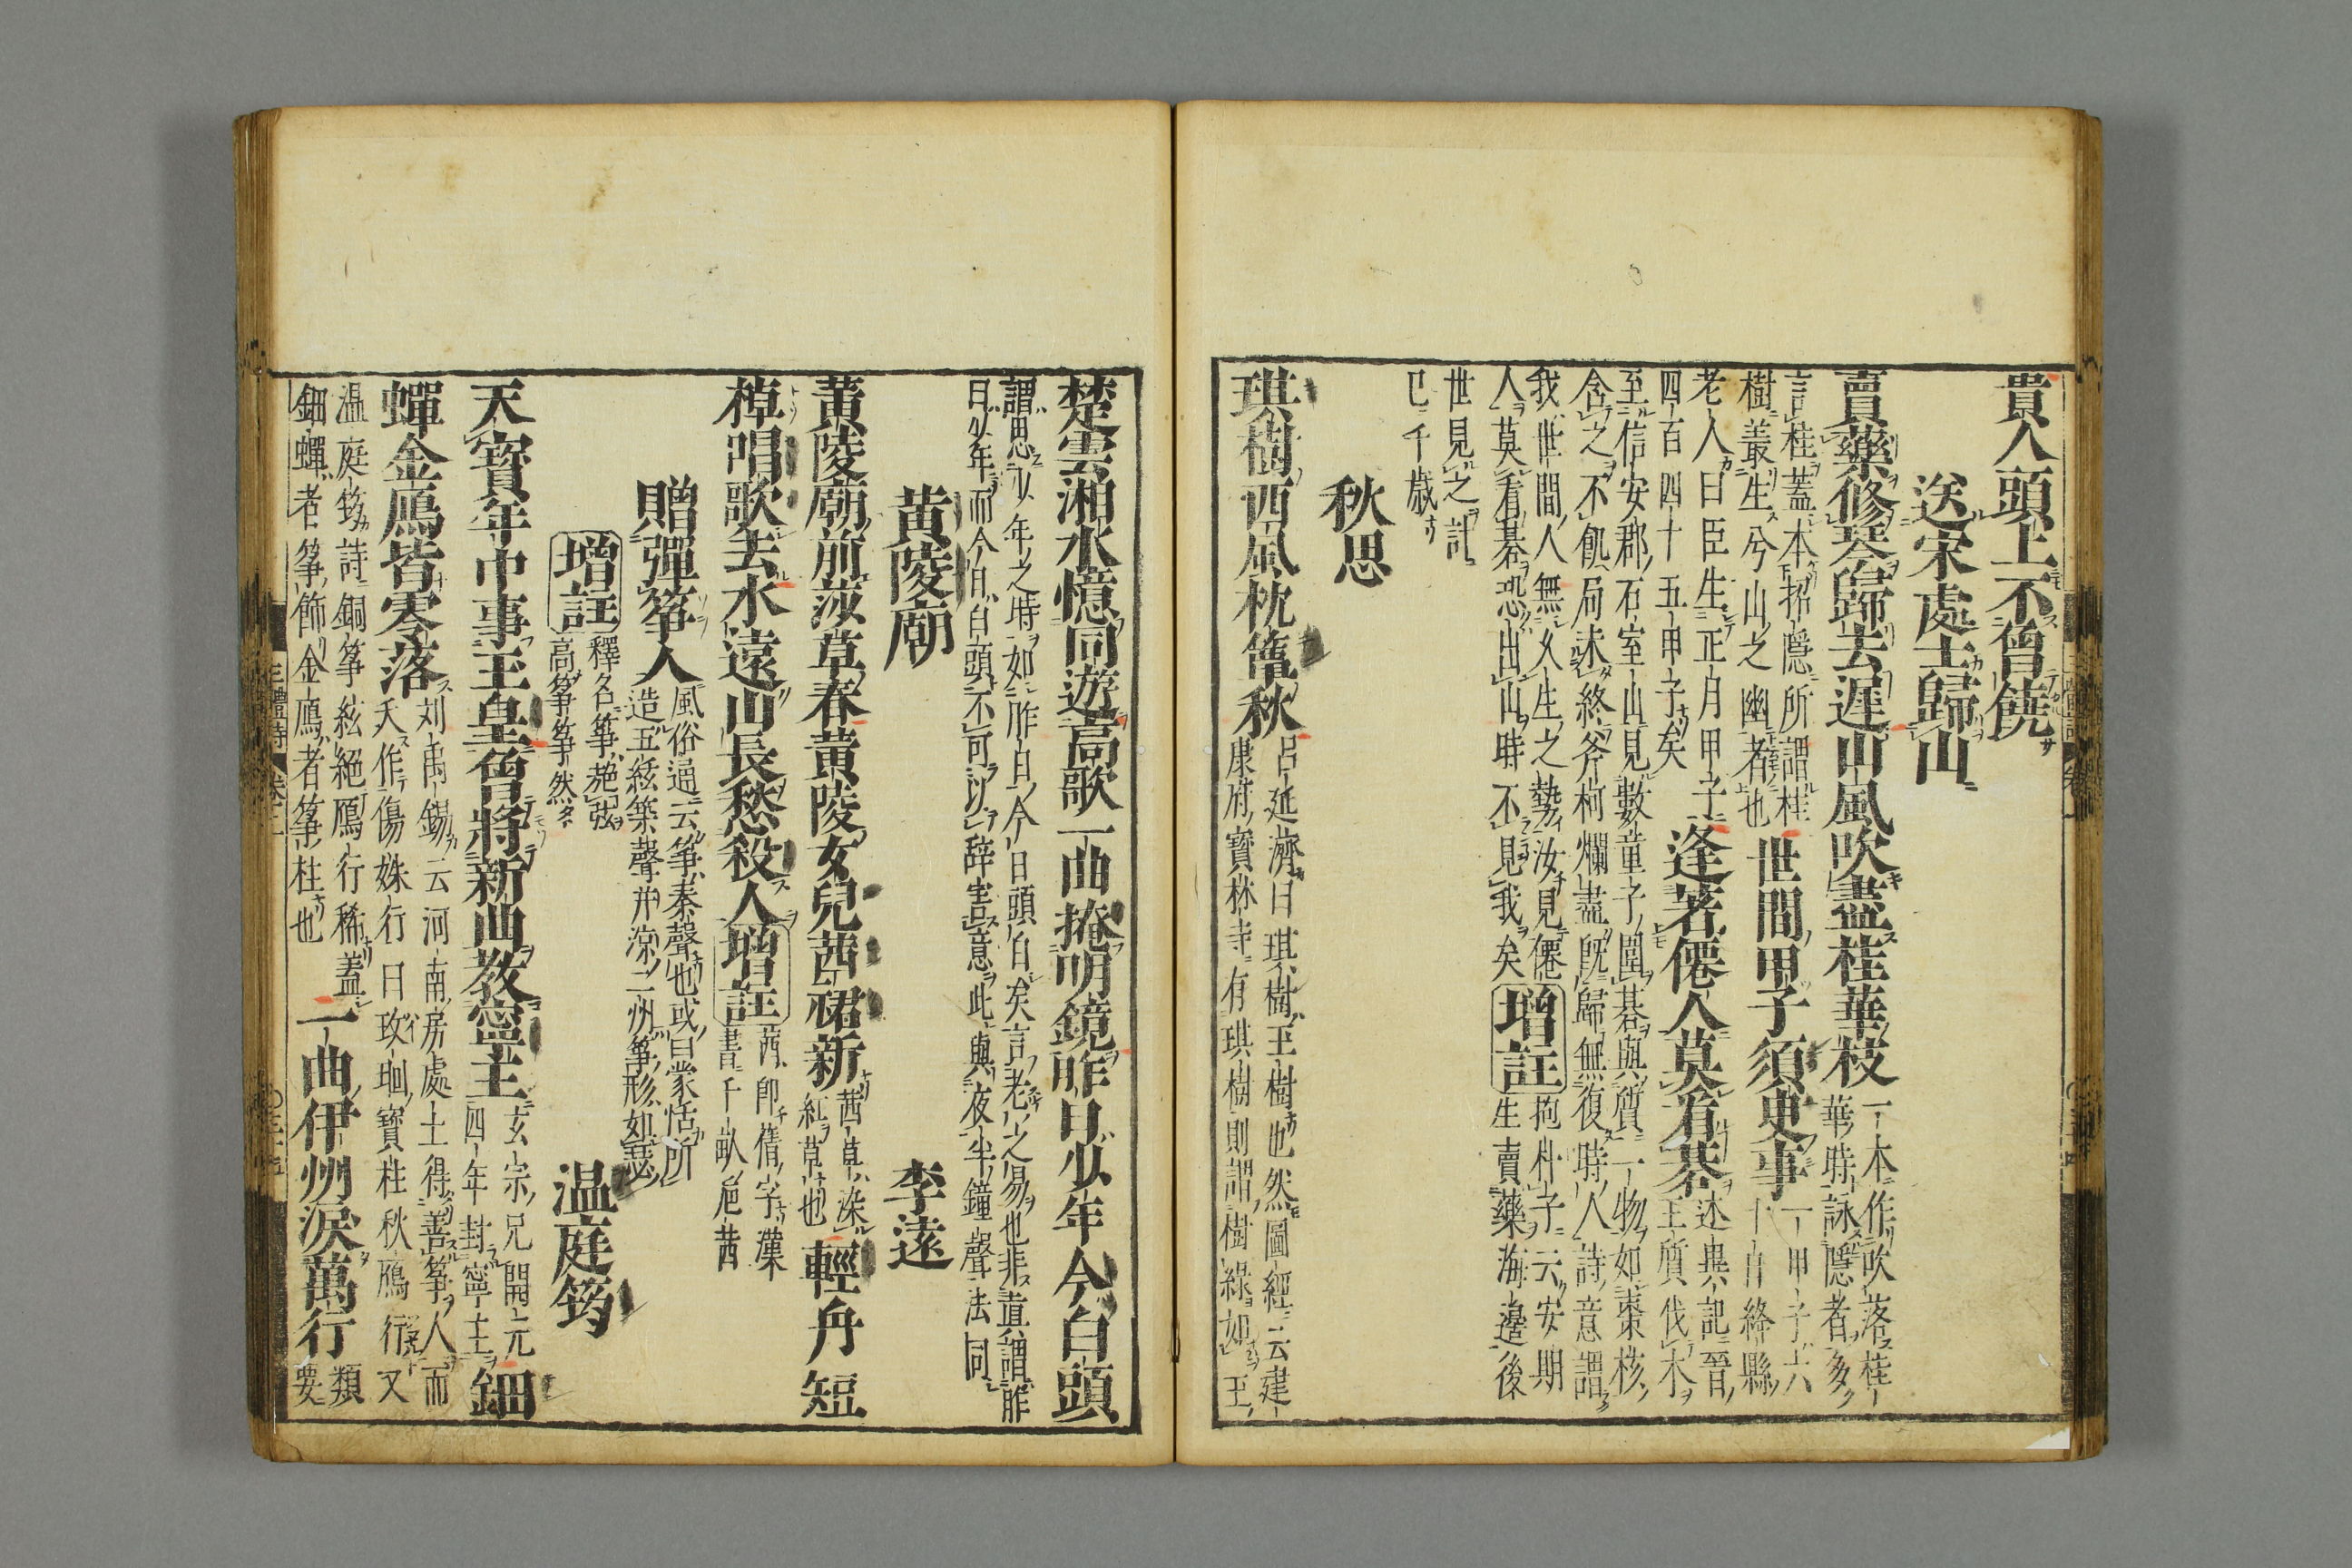 貴人頭上不曾饒
送宋處士歸山
賣藥修琴歸去遲山風吹盡桂華枝
一本作吹落桂
華時詠隱者多
言桂蓋本招隱所謂桂
樹叢生兮山之幽者也
世間甲子須臾事
一甲子六
十自絳縣
老人曰臣生正月甲子
四百四十五甲子矣
逢著僊人莫看碁
述異記晉
王質伐木
至信安郡石室山見數童子圍碁與質一物如棗核
含之不飢局未終斧柯爛盡旣歸無復時人詩意謂
我世間人無久生之勢汝見僊
人莫看碁恐出山時不見我矣
增註
抱朴子云安期
生賣藥海邊後
世見之計
已千歲
秋思
琪樹西風枕簟秋
呂延濟曰琪樹玉樹也然圖經云建
康府寶林寺有琪樹則謂樹綠如玉
楚雲湘水憶同遊高歌一曲掩明鏡昨日少年今白頭
謂思少年之時如昨日今日頭白矣言老之易也非直謂昨
日少年而今日白頭不可以辭害意此與夜半鐘聲法同
黃陵廟
李遠
黃陵廟前莎草春黃陵女兒茜裙新
茜草染
紅草也
輕舟短
棹唱歌去水遠山長愁殺人
增註
茜卽蒨字漢
書千畝巵茜
贈彈箏人
風俗通云箏秦聲也或曰蒙恬所
造五絃築聲幷涼二州箏形如瑟
增註
釋名箏施弦
高箏箏然
温庭筠
天寶年中事玉皇曾將新曲教寧王
玄宗兄開元
四年封寧王
鈿
蟬金鴈皆零落
刘禹錫云河南房處士得善箏人而
夭作傷姝行曰玫瑰寶柱秋鴈行又
温庭筠詩銅箏絃絕鴈行稀蓋
鈿蟬者箏飾金鴈者箏柱也
一曲伊州淚萬行
類
要
三體詩
卷二